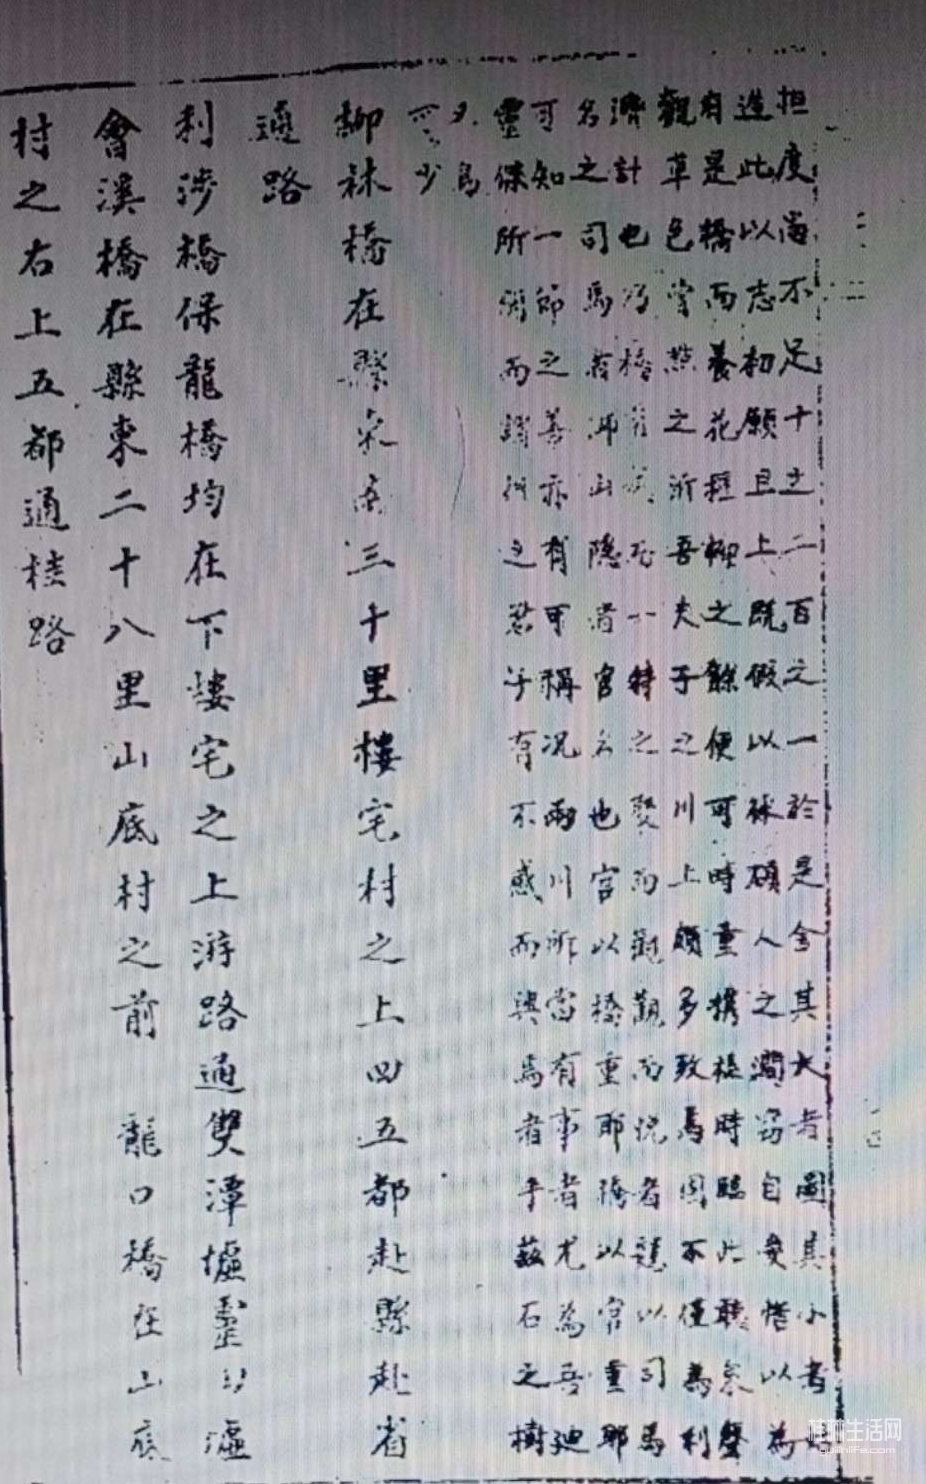 担度尚不足十之二百之一於是舍其大者圖其小者
造此以志初願且上既假以林碩人之澗窈自愛惜以為
有是橋而養花種柳之餘便可時重攜 時臨此聽泉聲
觀草色 之所吾夫子之川上頗多致焉固不僅為利
濟計也乃橋 一特之 而觀 而說者 以司馬
名之司馬者 山隱者官名也官以橋重耶橋以官重耶
可知一節之善亦有可稱况兩川所當有事者尤為吾迪
靈保所 而 之君子有不感而與焉者乎茲石之樹
又烏
可少
柳林橋在縣東南三十里樓宅村之上四五都赴縣赴省
通路
利涉橋保龍橋均在下樓宅之上游路通雙潭墟靈川墟
會溪橋在縣東二十八里山底村之前 龍口橋在山底
村之右上五都通桂路
桂林生活网
guilinlife.com